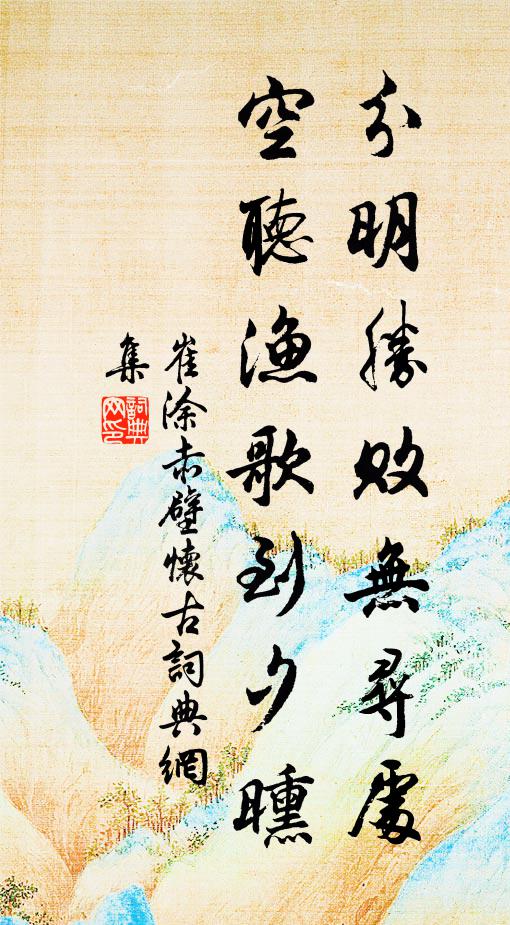 分明勝敗無尋處
空聽漁歌到夕曛
崔涂赤壁懷古詞典網
集
詞典
网印